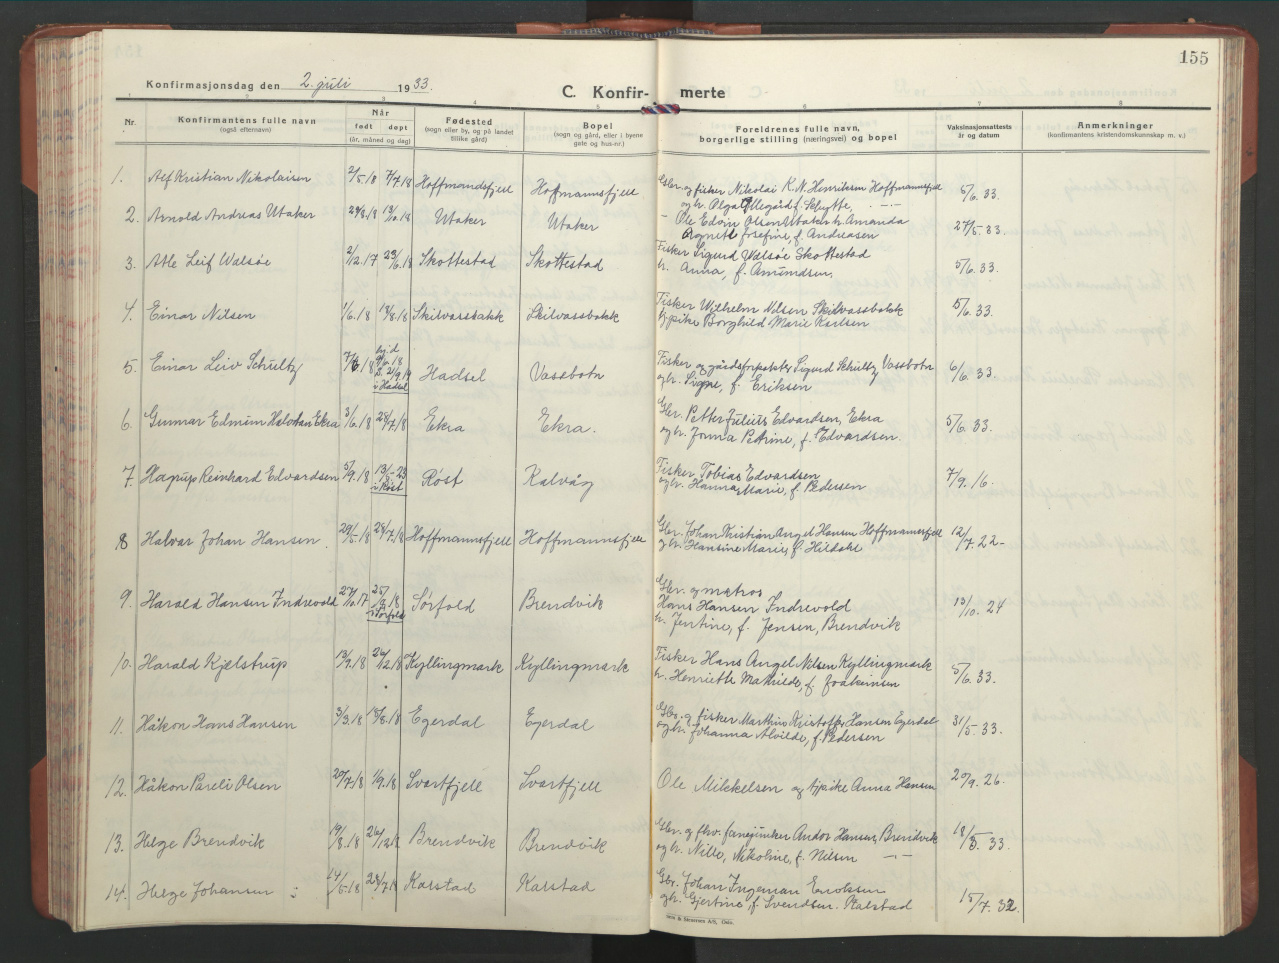 155
Konfirmasjonsdag den 2. juli 1933.
C. Konfir- merte
1 2 3 4 5 6 7 8
Nr.
Konfirmantens fulle navn
(også efternavn)
Når
født døpt
(år, måned og dag)
Fødested
(sogn eller by, og på landet
tillike gård)
Bopel
(sogn og gård, eller i byene
gate og hus-nr.)
Foreldrenes fulle navn,
borgerlige stilling (næringsvei) og bopel
Vaksinasjonsattests
år og datum
Anmerkninger
(konfirmantens kristendomskunnskap m. v.)
1. Alf Kristian Nikolaisen 2/5.18 7/7.18 Hoffmandsfjell Hoffmannsfjell Gbr. og fisker Nikolai K. N. Henriksen Hoffmannsfjell 5/6.33
og h. Olga f. Schytte, - - -
2. Arnold Andreas Utaker 13/10.18 Utaker Utaker - Ole Edvin Olsen Utaker h. Amanda 27/5.33.
Agnete Josefine, f. Andreasen
3. Atle Leif Walsøe 2/12.17 23/6.18 Skottestad Skottestad Fisker Sigurd Walsøe Skottestad 5/6.33.
h. Anna, f. Amundsen,
4. Einar Nilsen 1/6.18 18/8.18 Skilvassbakk Skilvassbakk Fisker Wilhelm Nilsen Skilvassbakk 5/6.33.
og pike Borghild Marie Karlsen
5. Einar Leiv Schultz 7/6.18 i Hadsel Hadsel Vassbotn Fisker og gårdsforpakter Sigurd Schultz Vassbotn 6/6.33.
og h. Signe, f. Eriksen
6. Gunnar Edmun Halvdan Ekra 3/6.18 28/7.18 Ekra Ekra. Gbr. Petter Julius Edvardsen, Ekra 5/6.33.
og h. Jonna Petrine, f. Edvardsen.
7. Hagrup Reinhard Edvardsen 5/9.18 13/5-23 i Røst Røst Kalvåg Fisker Tobias Edvardsen 7/9.16.
og h. Hanna Marie, f. Pedersen
8 Halvar Johan Hansen. 29/5-18 28/7.18 Hoffmannsfjell Hoffmannsfjell Gbr. Johan Kristian Angel Hansen Hoffmannsfjell 12/7.22-
og h. Hansine Marie, f. Hildahl
9. Harald Hansen Indrevold 27/10.17 25/8.18 i Sørfold Sørfold Brendvik Gbr. og matros
Hans Hansen Indrevold 13/10.24
h. Jentine, f. Jensen, Brendvik
10. Harald Kjelstrup 26/12.18 Kyllingmark Kyllingmark Fisker Hans Angel Nilsen Kyllingmark 5/6.33.
h. Henriette Mathilde, f. Joakimsen
11. Håkon Hans Hansen 3/3.18 18/8.18 Egerdal Egerdal Gbr. og fisker Marthin Kristoffer Hansen Egerdal 31/5-33.
og h. Johanna Alvilde, f. Pedersen
12. Håkon Pareli Olsen 27/7.18 1/9.18 Svartfjell Svartfjell Ole Mikkelsen og pike Anna Hansen 20/9.26.
13. Helge Brendvik 19/8.18 26/12.18 Brendvik Brendvik Gbr. og fhv. fanejunker Andor Hansen, Brendvik 18/5.33.
og h. Nille, Nikoline, f. Nilsen - -
14. Helge Johansen 14/5-18 28/7.18 Kalstad Kalstad Gbr. Johan Ingeman Eriksen
og h. Gjertine, f. Svendsen. Kalstad 15/7.32.